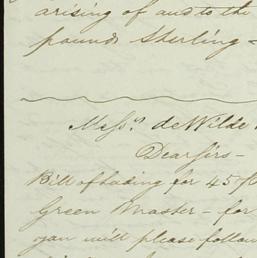 arising of and to the
pounds Sterling -
Mess.rs de Wilde
Dear Sirs -
Bill of Lading for 45
Green Master - for
you will please follow